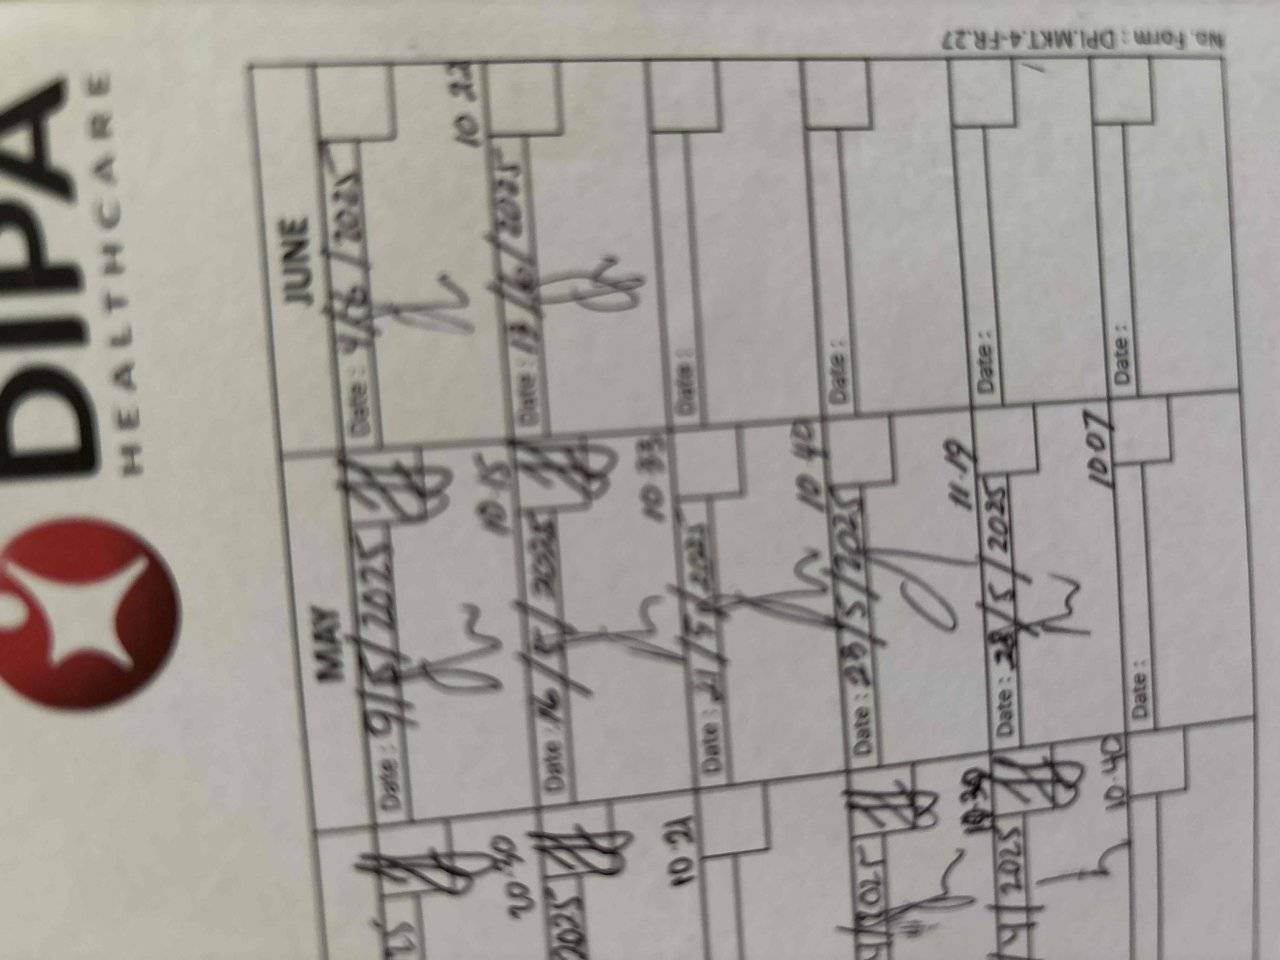 DIPA
HEALTHCARE
MAY
JUNE
Date : 9/5/2025
Date : 4/6/2025
20:30
10.15
10 22
2025
Date : 16/5/2025
Date : 13/6/2025
10.21
10 33
Date : 21/5/2025
Date :
10 40
4/2025
Date : 23/5/2025
Date :
11.19
4/2025
Date : 28/5/2025
Date :
10.40
10 07
Date :
Date :
No. Form : DPI.MKT.4-FR.27